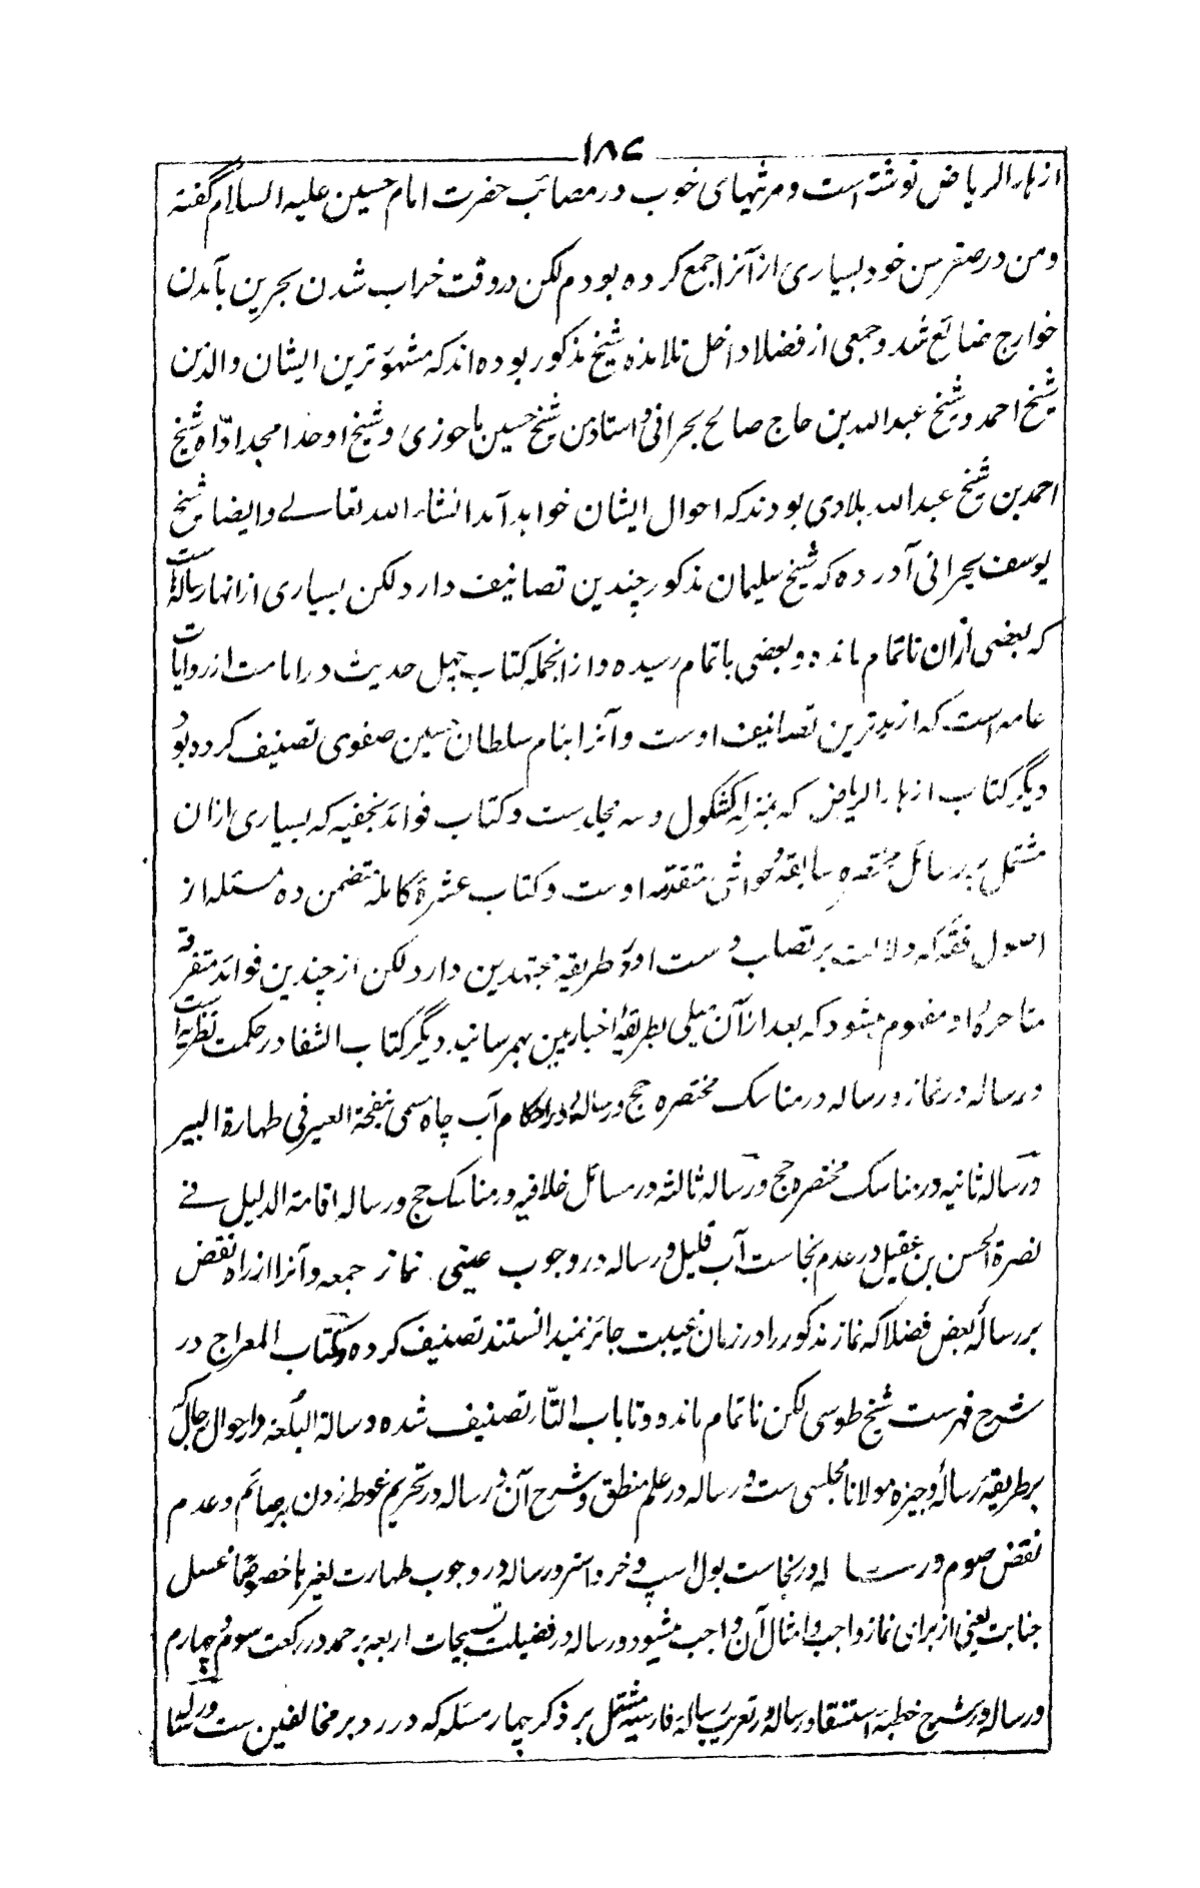 ۱۸۴
ازهار الریاض نوشته است و مرثیهای خوب در مصائب حضرت امام حسین علیه السلام گفته
ومن در صغر سن خود بسیاری از آنرا جمع کرده بودم لکن در وقت خراب شدن بحرین بآمدن
خوارج ضائع شد و جمعی از فضلا داخل تلامذه شیخ مذکور بوده اند که مشهور ترین ایشان والدن
شیخ احمد و شیخ عبدالله بن حاج صالح بحرانی و استاذن شیخ حسین ماحوزی و شیخ اوحد امجد اوّاه شیخ
احمد بن شیخ عبدالله بلادی بودند که احوال ایشان خواهد آمد انشاء الله تعالے وایضا شیخ
یوسف بحرانی آورده که شیخ سلیمان مذکور چندین تصانیف دارد لکن بسیاری از انها رساله است
که بعضی ازان ناتمام مانده و بعضی باتمام رسیده و ازانجمله کتاب چهل حدیث در امامت از روایات
عامه است که از بهترین تصانیف اوست و آنرا بنام سلطان حسین صفوی تصنیف کرده بود
دیگر کتاب ازهار الریاض که بمنزله کشکول و سه مجلد ست و کتاب فوائد نجفیه که بسیاری ازان
مشتمل بر رسائل سابقه و حواشی متقدمه اوست و کتاب عشرهٔ کامله متضمن ده مسئله از
اصول فقه که دلالت بر تصلب اوست و او طریقه مجتهدین دارد لکن از چندین فوائد متفرقه
متاخرهٔ او مفهوم میشود که بعد ازآن میلی بطریقهٔ اخباریین بهمرسانید دیگر کتاب الشفا در حکمت نظریه است
ورساله در نماز و رساله در مناسک مختصره حج ورسالهٔ در احکام آب چاه مسمی بنفحة العبیر فی طهارة البیر
ورساله ثانیه در مناسک مختصره حج ورساله ثالثه در مسائل خلافیه در مناسک حج ورساله اقامة الدلیل فے
نصرة الحسن بن عقیل در عدم نجاست آب قلیل ورساله در وجوب عینی نماز جمعه و آنرا از راه نقض
بر رسالهٔ بعض فضلا که نماز مذکور را در زمان غیبت جائز نمیدانستند تصنیف کرده و کتاب المعراج در
شرح فهرست شیخ طوسی لکن ناتمام مانده و تا باب التّا تصنیف شده ورسالة البلغه در احوال رجال که
بر طریقهٔ رسالهٔ وجیزه مولانا مجلسی ست ورساله در علم منطق و شرح آن ورساله در تحریم غوطه زدن بر صائم وعدم
نقض صوم ورساله در نجاست بول اسپ و خر و استر ورساله در وجوب طهارت لغیرها خصوصًا غسل
جنابت یعنی از برای نماز واجب و امثال آن واجب میشود ورساله در فضیلت تسبیحات اربعه بر حمد در رکعت سوم و چهارم
ورساله در شرح خطبهٔ استسقا ورساله در تعریب رسالهٔ فارسیه مشتمل بر ذکر چهار مسئله که در رد بر مخالفین ست ورساله